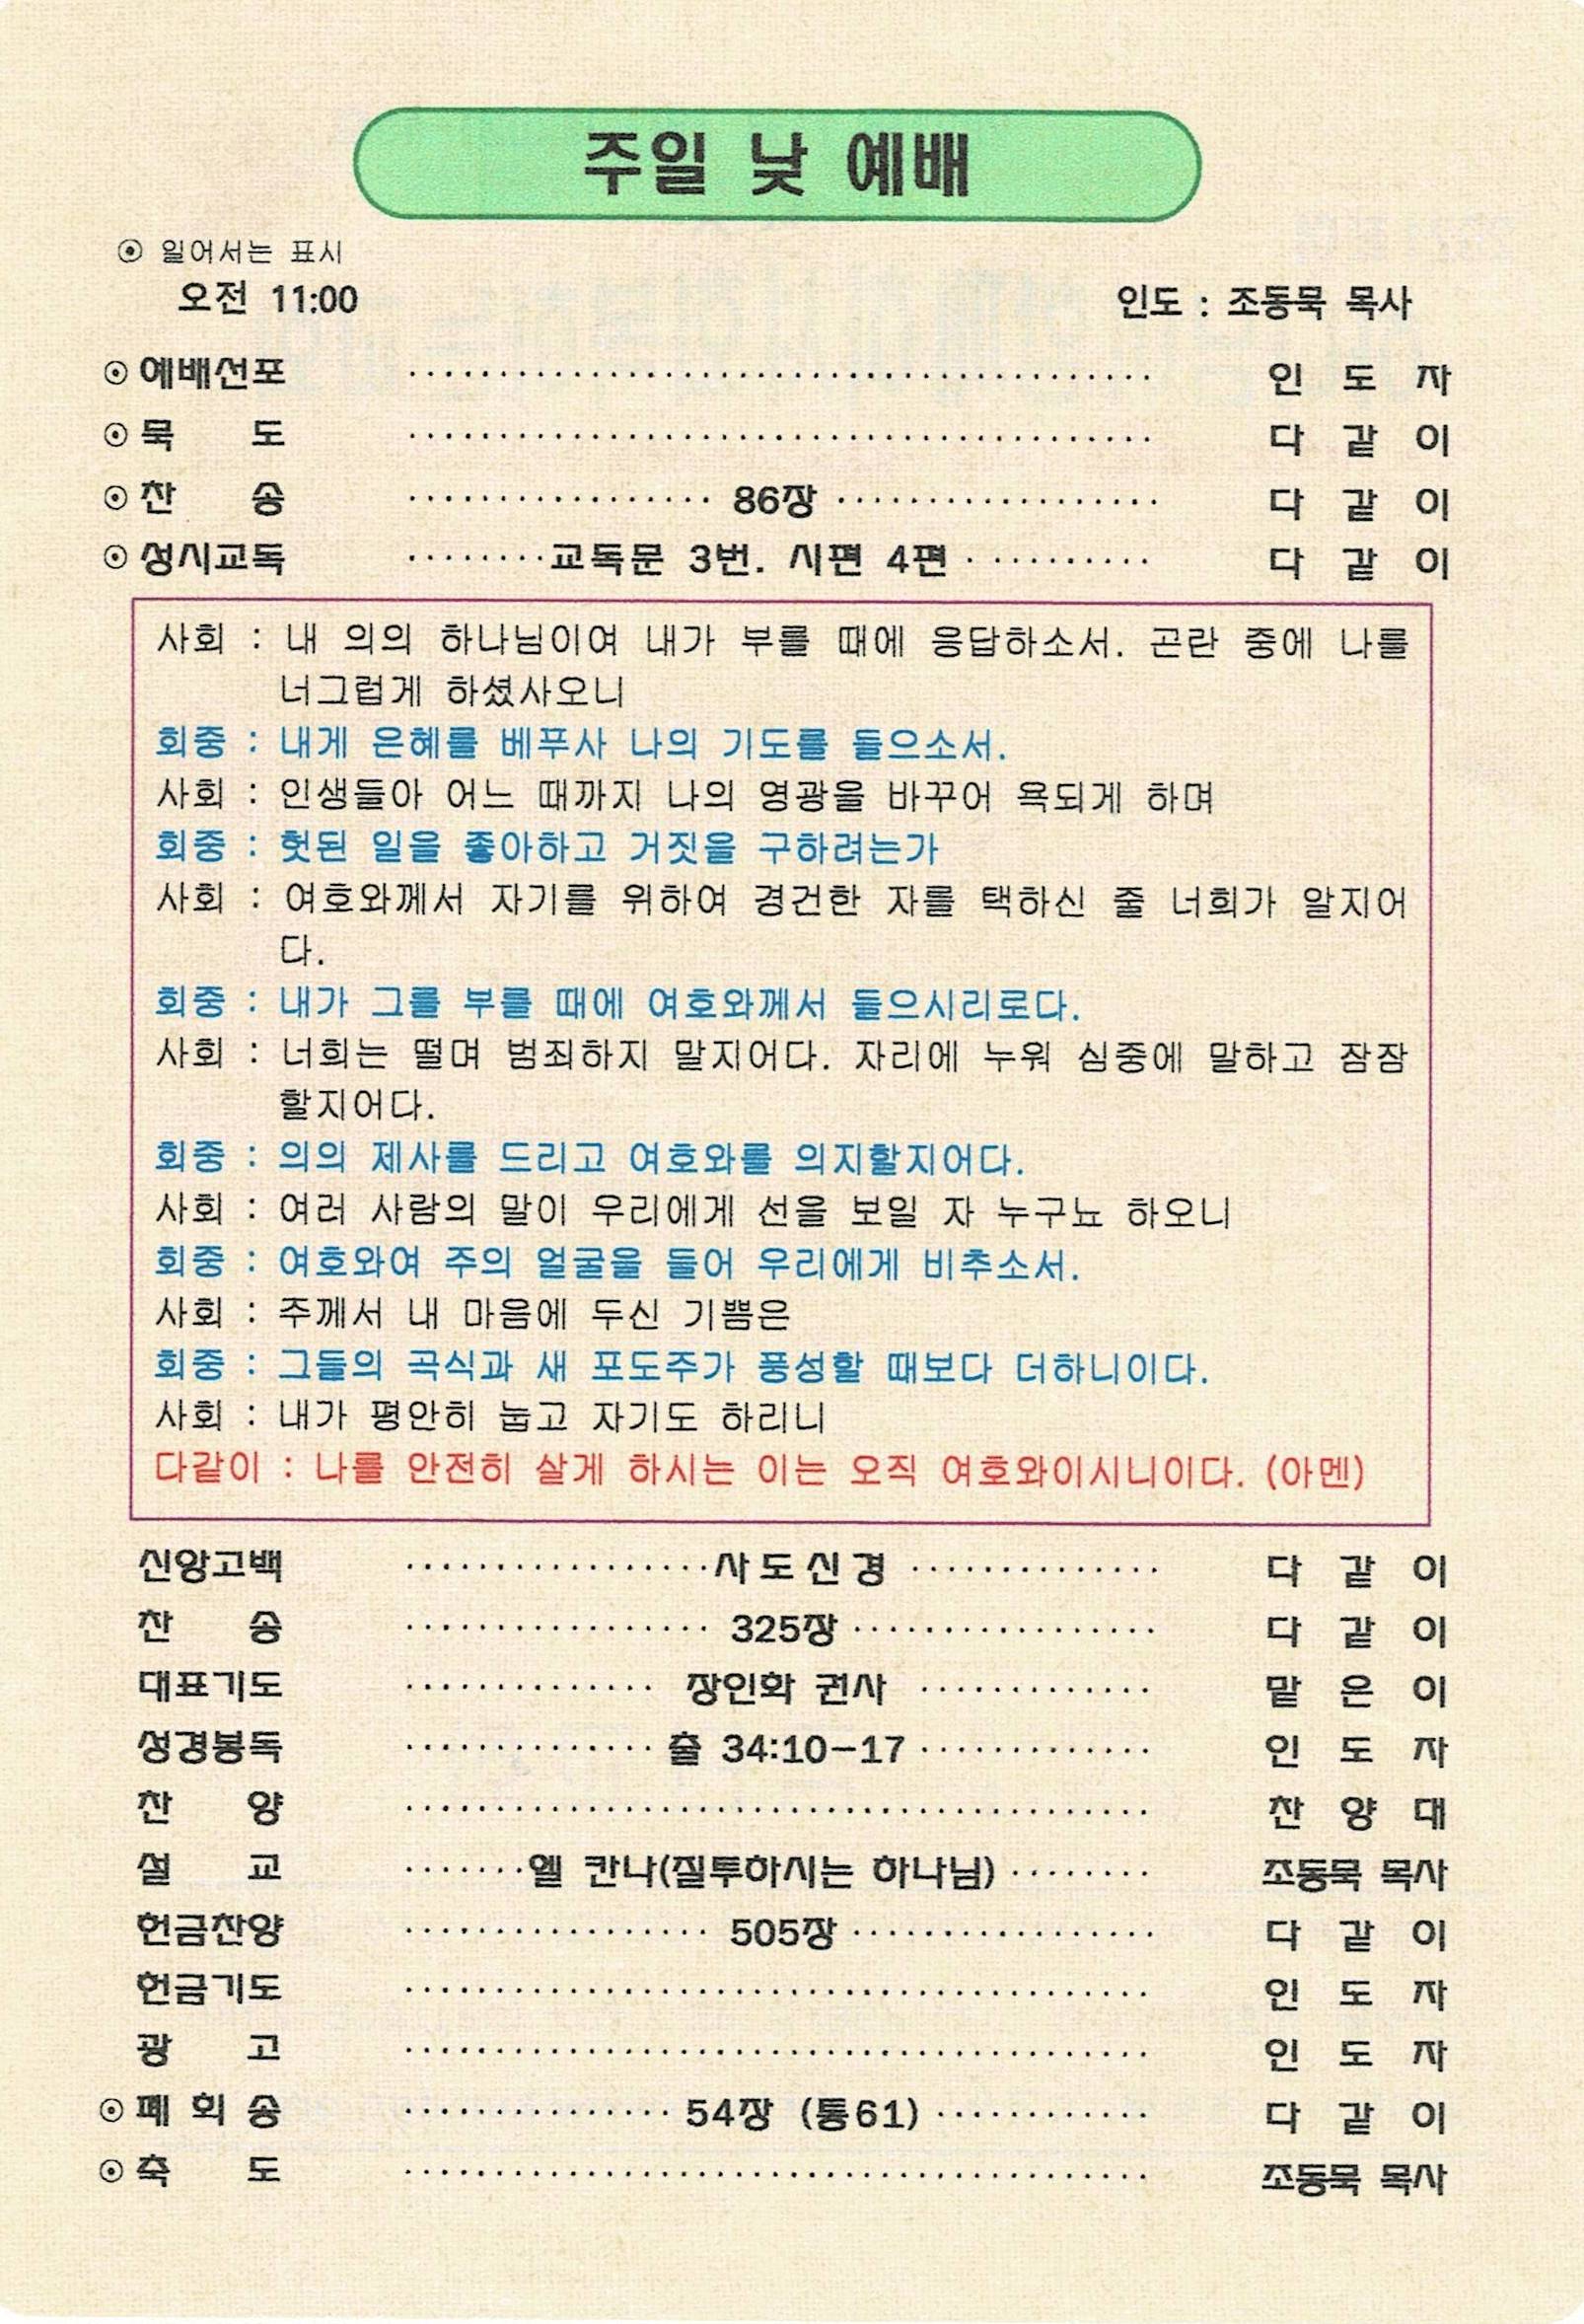 주일 낮 예배
⊙ 일어서는 표시
오전 11:00 인도 : 조동묵 목사
⊙ 예배선포 ········································· 인 도 자
⊙ 묵 도 ········································· 다 같 이
⊙ 찬 송 ················· 86장 ·················· 다 같 이
⊙ 성시교독 ········교독문 3번. 시편 4편 ··········· 다 같 이
사회 : 내 의의 하나님이여 내가 부를 때에 응답하소서. 곤란 중에 나를
너그럽게 하셨사오니
회중 : 내게 은혜를 베푸사 나의 기도를 들으소서.
사회 : 인생들아 어느 때까지 나의 영광을 바꾸어 욕되게 하며
회중 : 헛된 일을 좋아하고 거짓을 구하려는가
사회 : 여호와께서 자기를 위하여 경건한 자를 택하신 줄 너희가 알지어
다.
회중 : 내가 그를 부를 때에 여호와께서 들으시리로다.
사회 : 너희는 떨며 범죄하지 말지어다. 자리에 누워 심중에 말하고 잠잠
할지어다.
회중 : 의의 제사를 드리고 여호와를 의지할지어다.
사회 : 여러 사람의 말이 우리에게 선을 보일 자 누구뇨 하오니
회중 : 여호와여 주의 얼굴을 들어 우리에게 비추소서.
사회 : 주께서 내 마음에 두신 기쁨은
회중 : 그들의 곡식과 새 포도주가 풍성할 때보다 더하니이다.
사회 : 내가 평안히 눕고 자기도 하리니
다같이 : 나를 안전히 살게 하시는 이는 오직 여호와이시니이다. (아멘)
신앙고백 ·················사도신경 ·············· 다 같 이
찬 송 ················· 325장 ················· 다 같 이
대표기도 ·············· 장인화 권사 ············· 맡 은 이
성경봉독 ·············· 출 34:10-17 ············· 인 도 자
찬 양 ········································· 찬 양 대
설 교 ·······엘 칸나(질투하시는 하나님) ········ 조동묵 목사
헌금찬양 ················· 505장 ················· 다 같 이
헌금기도 ········································· 인 도 자
광 고 ········································· 인 도 자
⊙ 폐 회 송 ··············· 54장 (통61) ············ 다 같 이
⊙ 축 도 ········································· 조동묵 목사